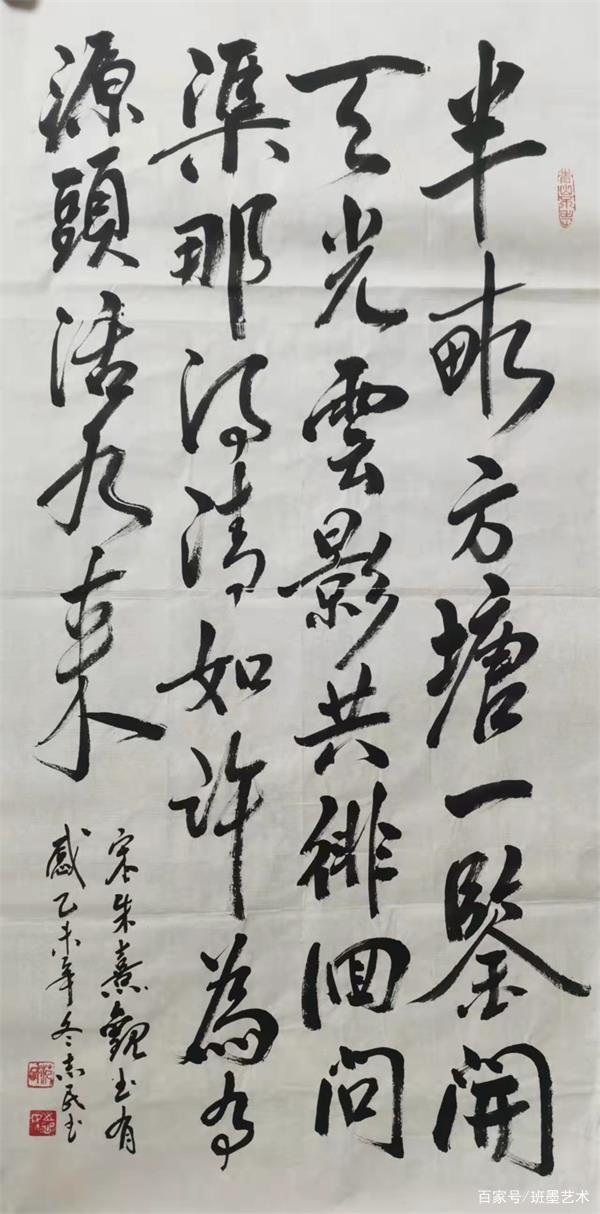 半畝方塘一鑒開
天光雲影共徘回問
渠那得清如許為有
源頭活水來
宋朱熹觀书有
感乙未年冬志民书
百家号/班墨艺术